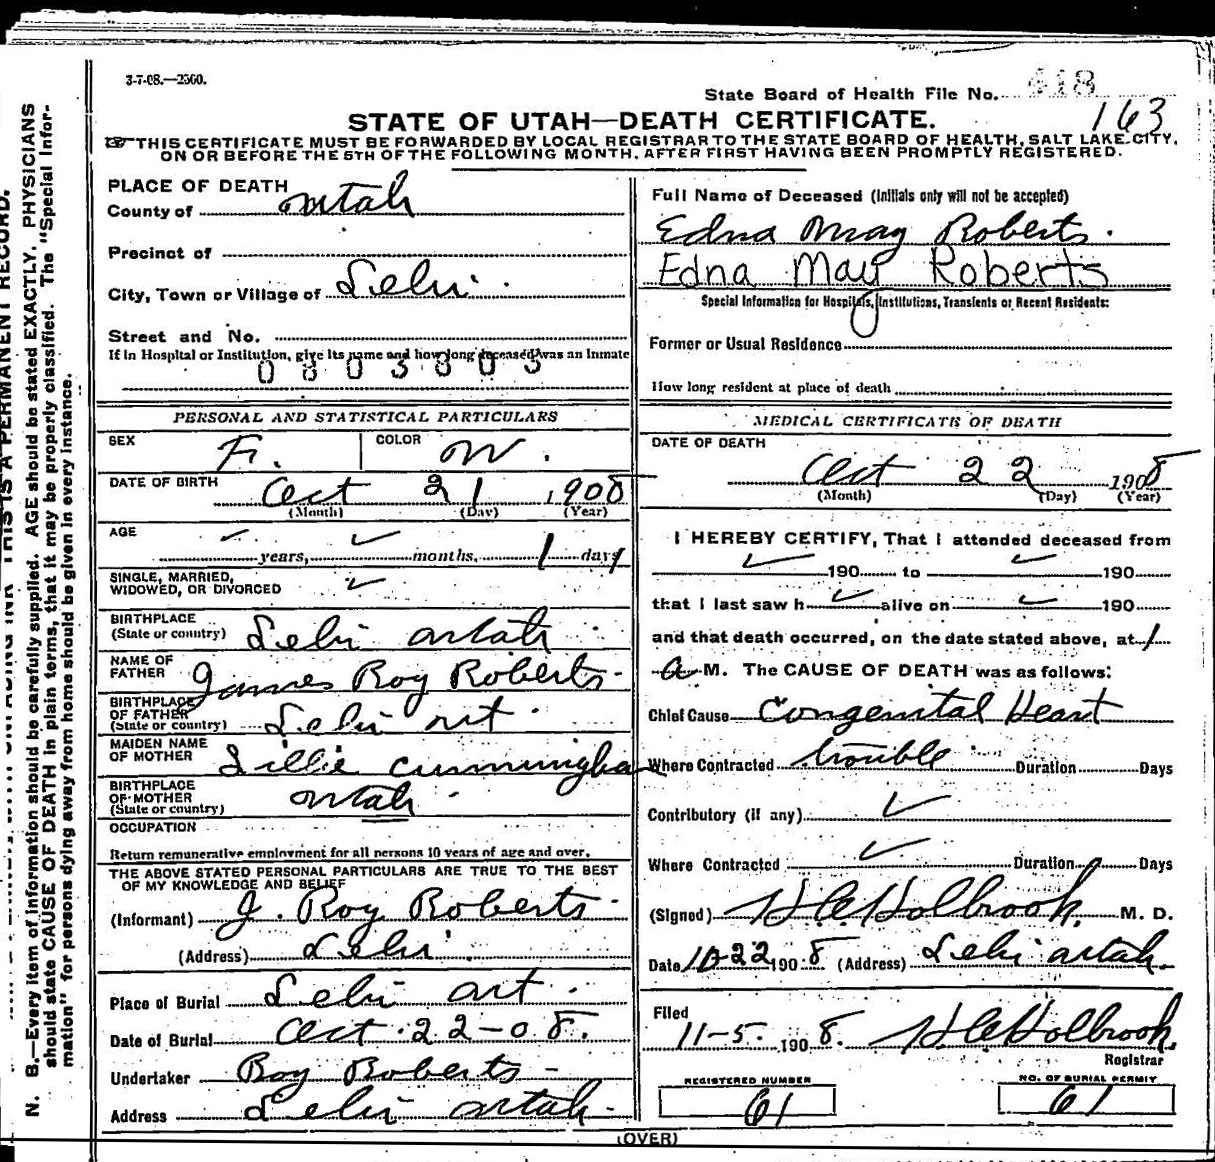 3-7-08.—2500.
State Board of Health File No. 418
163
STATE OF UTAH—DEATH CERTIFICATE.
☞THIS CERTIFICATE MUST BE FORWARDED BY LOCAL REGISTRAR TO THE STATE BOARD OF HEALTH, SALT LAKE CITY,
ON OR BEFORE THE 5TH OF THE FOLLOWING MONTH, AFTER FIRST HAVING BEEN PROMPTLY REGISTERED.
PLACE OF DEATH
County of Utah
Precinct of
City, Town or Village of Lehi.
Street and No.
If in Hospital or Institution, give its name and how long deceased was an Inmate
0803803
Full Name of Deceased (Initials only will not be accepted)
Edna May Roberts.
Edna May Roberts
Special Information for Hospitals, Institutions, Transients or Recent Residents:
Former or Usual Residence
How long resident at place of death
PERSONAL AND STATISTICAL PARTICULARS
SEX F. COLOR W.
DATE OF BIRTH Oct 21 1908
(Month) (Day) (Year)
AGE
✓ years, ✓ months, 1 days
SINGLE, MARRIED,
WIDOWED, OR DIVORCED ✓
BIRTHPLACE
(State or country) Lehi Utah
NAME OF
FATHER James Roy Roberts
BIRTHPLACE
OF FATHER
(State or country) Lehi Ut.
MAIDEN NAME
OF MOTHER Lillie Cunningham
BIRTHPLACE
OF MOTHER
(State or country) Utah
OCCUPATION
Return remunerative employment for all persons 10 years of age and over.
THE ABOVE STATED PERSONAL PARTICULARS ARE TRUE TO THE BEST
OF MY KNOWLEDGE AND BELIEF
(Informant) J. Roy Roberts
(Address) Lehi
Place of Burial Lehi Ut.
Date of Burial Oct. 22-08.
Undertaker Roy Roberts
Address Lehi Utah.
MEDICAL CERTIFICATE OF DEATH
DATE OF DEATH
Oct 22 1908
(Month) (Day) (Year)
I HEREBY CERTIFY, That I attended deceased from
✓ 190 to ✓ 190
that I last saw h ✓ alive on ✓ 190
and that death occurred, on the date stated above, at 1
A M. The CAUSE OF DEATH was as follows:
Chief Cause Congenital Heart
trouble
Where Contracted Duration Days
Contributory (if any) ✓
Where Contracted ✓ Duration Days
(Signed) H C Holbrook, M. D.
Date 10-22 1908 (Address) Lehi Utah.
Filed
11-5. 1908. H C Holbrook.
Registrar
REGISTERED NUMBER
61
NO. OF BURIAL PERMIT
61
(OVER)
N. B.—Every item of information should be carefully supplied. AGE should be stated EXACTLY. PHYSICIANS
should state CAUSE OF DEATH in plain terms, that it may be properly classified. The "Special Infor-
mation" for persons dying away from home should be given in every instance.
THIS IS A PERMANENT RECORD.